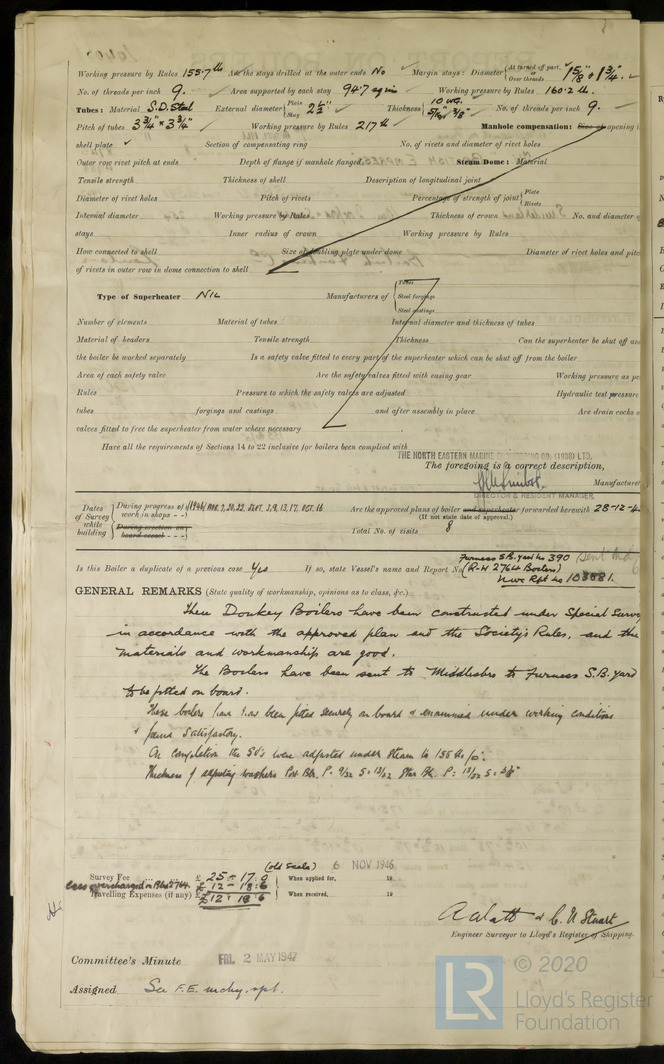 Working pressure by Rules 155.7 lb Are the stays drilled at the outer ends No Margin stays: Diameter { At turned off part. or Over threads 1 5/8" & 1 3/4"
No. of threads per inch 9. Area supported by each stay 94.7 sq in Working pressure by Rules 160.2 lb.
Tubes: Material S.D. Steel External diameter { Plain Stay 2 1/2" Thickness { 10 WG. 5/16" 3/8" No. of threads per inch 9.
Pitch of tubes 3 3/4" × 3 3/4" Working pressure by Rules 217 lb Manhole compensation: Size of opening i
shell plate Section of compensating ring No. of rivets and diameter of rivet holes
Outer row rivet pitch at ends Depth of flange if manhole flanged Steam Dome: Material
Tensile strength Thickness of shell Description of longitudinal joint
Diameter of rivet holes Pitch of rivets Percentage of strength of joint { Plate Rivets
Internal diameter Working pressure by Rules Thickness of crown No. and diameter o
stays Inner radius of crown Working pressure by Rules
How connected to shell Size of doubling plate under dome Diameter of rivet holes and pitc
of rivets in outer row in dome connection to shell
Type of Superheater NIL Manufacturers of { Tubes Steel forgings Steel castings
Number of elements Material of tubes Internal diameter and thickness of tubes
Material of headers Tensile strength Thickness Can the superheater be shut off an
the boiler be worked separately Is a safety valve fitted to every part of the superheater which can be shut off from the boiler
Area of each safety valve Are the safety valves fitted with easing gear Working pressure as pe
Rules Pressure to which the safety valves are adjusted Hydraulic test pressure
tubes forgings and castings and after assembly in place Are drain cocks o
valves fitted to free the superheater from water where necessary
Have all the requirements of Sections 14 to 22 inclusive for boilers been complied with
THE NORTH EASTERN MARINE ENGINEERING CO. (1938) LTD.
The foregoing is a correct description,
Manufacture
DIRECTOR & RESIDENT MANAGER.
Dates of Survey while building { During progress of work in shops - - } (1946) AUG. 7, 20, 22, SEPT. 3, 9, 13, 17, OCT. 16 Are the approved plans of boiler and superheater forwarded herewith 28-12-4
(If not state date of approval.)
During erection on board vessel - - Total No. of visits 8
Furness S.B. yard No 390
Is this Boiler a duplicate of a previous case Yes If so, state Vessel's name and Report No. (R-W 2764 Boilers)
Nwc Rpt No 103881.
GENERAL REMARKS (State quality of workmanship, opinions as to class, &c.)
These Donkey Boilers have been constructed under Special Survey
in accordance with the approved plan and the Society's Rules, and the
materials and workmanship are good.
The Boilers have been sent to Middlesbro to Furness S.B. yard
to be fitted on board.
These boilers have now been fitted securely on board & examined under working conditions
& found satisfactory.
On completion the SV's were adjusted under steam to 155 lb/□".
Thickness of adjusting washers Port Blr. P. 9/32 S. 13/32 Star Blr. P. 13/32 S. 3/8"
(old scale) 6 NOV 1946
Survey Fee £ 25 - 17 : 0 When applied for, 19
less overcharged on £ 12 - 18 : 6
Travelling Expenses (if any) £ 12 : 18 : 6 When received, 19
A Watt & C. N Stuart
Engineer Surveyor to Lloyd's Register of Shipping.
Committee's Minute FRI. 2 MAY 1947
Assigned See F.E. mchy. rpt.
LR © 2020
Lloyd's Register
Foundation